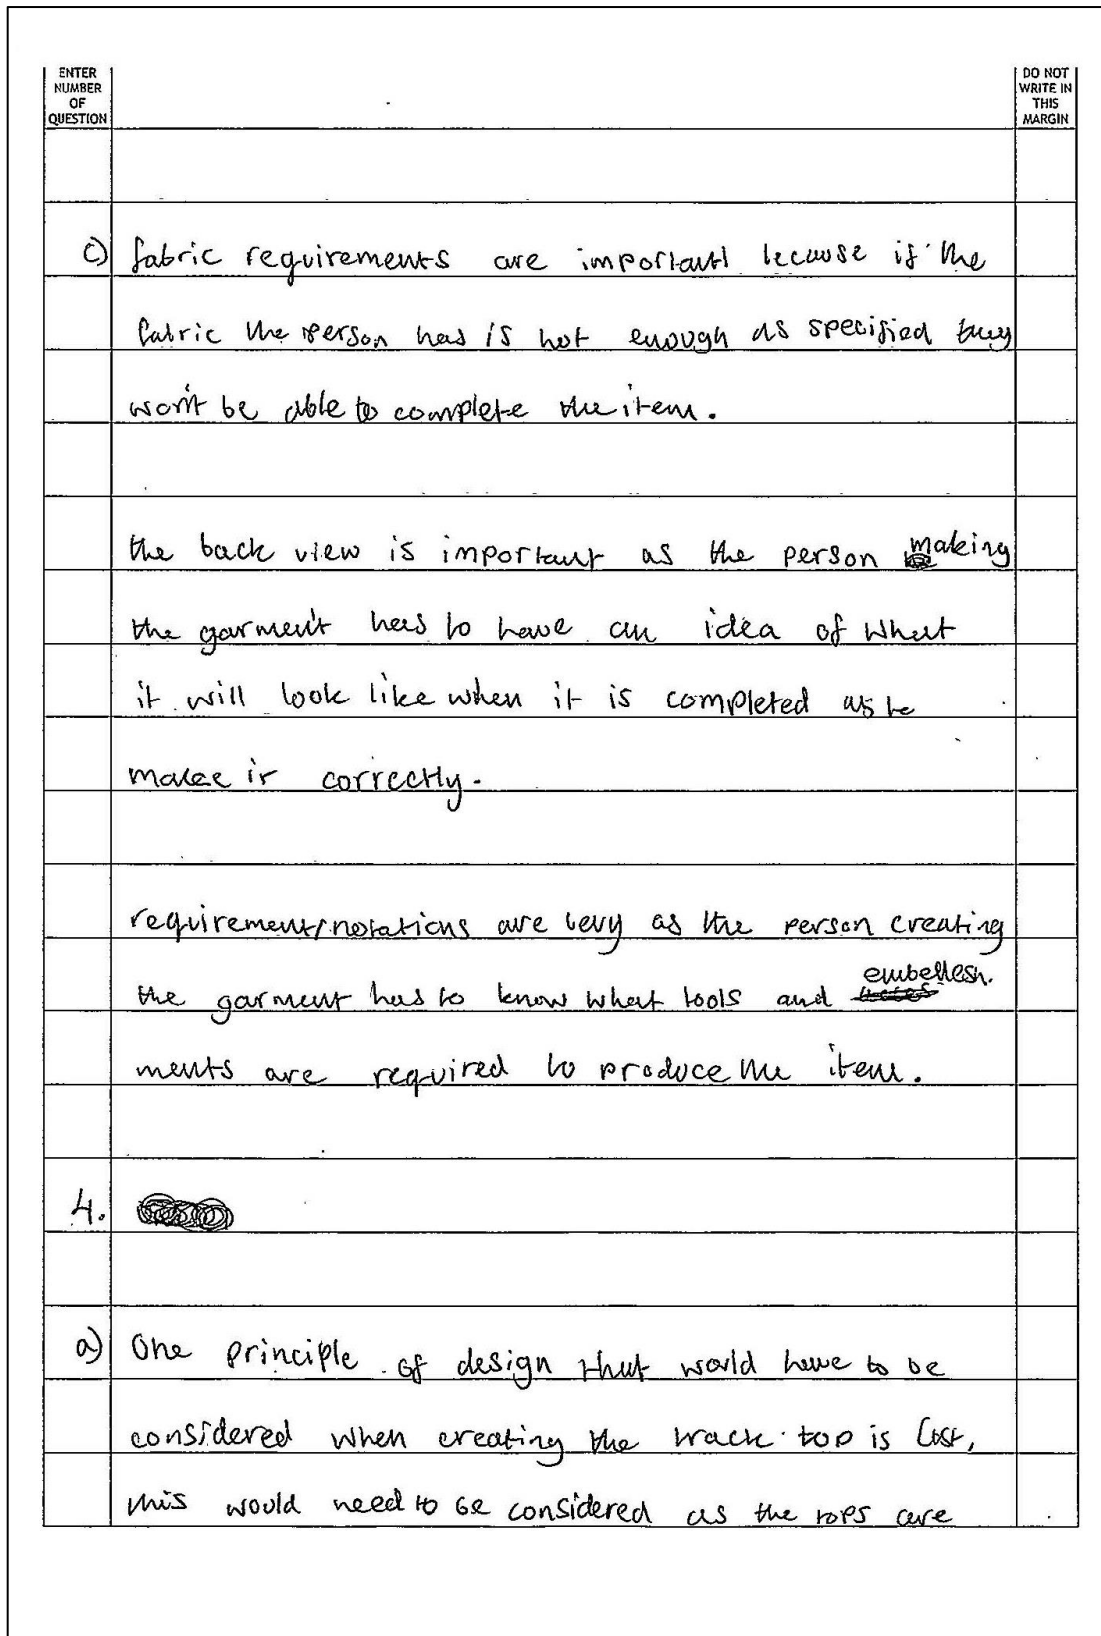 ENTER
NUMBER
OF
QUESTION
DO NOT
WRITE IN
THIS
MARGIN
c) fabric requirements are important because if the
fabric the person has is not enough as specified they
won't be able to complete the item.
the back view is important as the person making
the garment has to have an idea of what
it will look like when it is completed as to
make it correctly.
requirement/notations are as the person creating
the garment has to know what tools and embellesh.
ments are required to produce the item.
4.
a) One principle of design that would have to be
considered when creating the track top is Cost,
this would need to be considered as the tops are